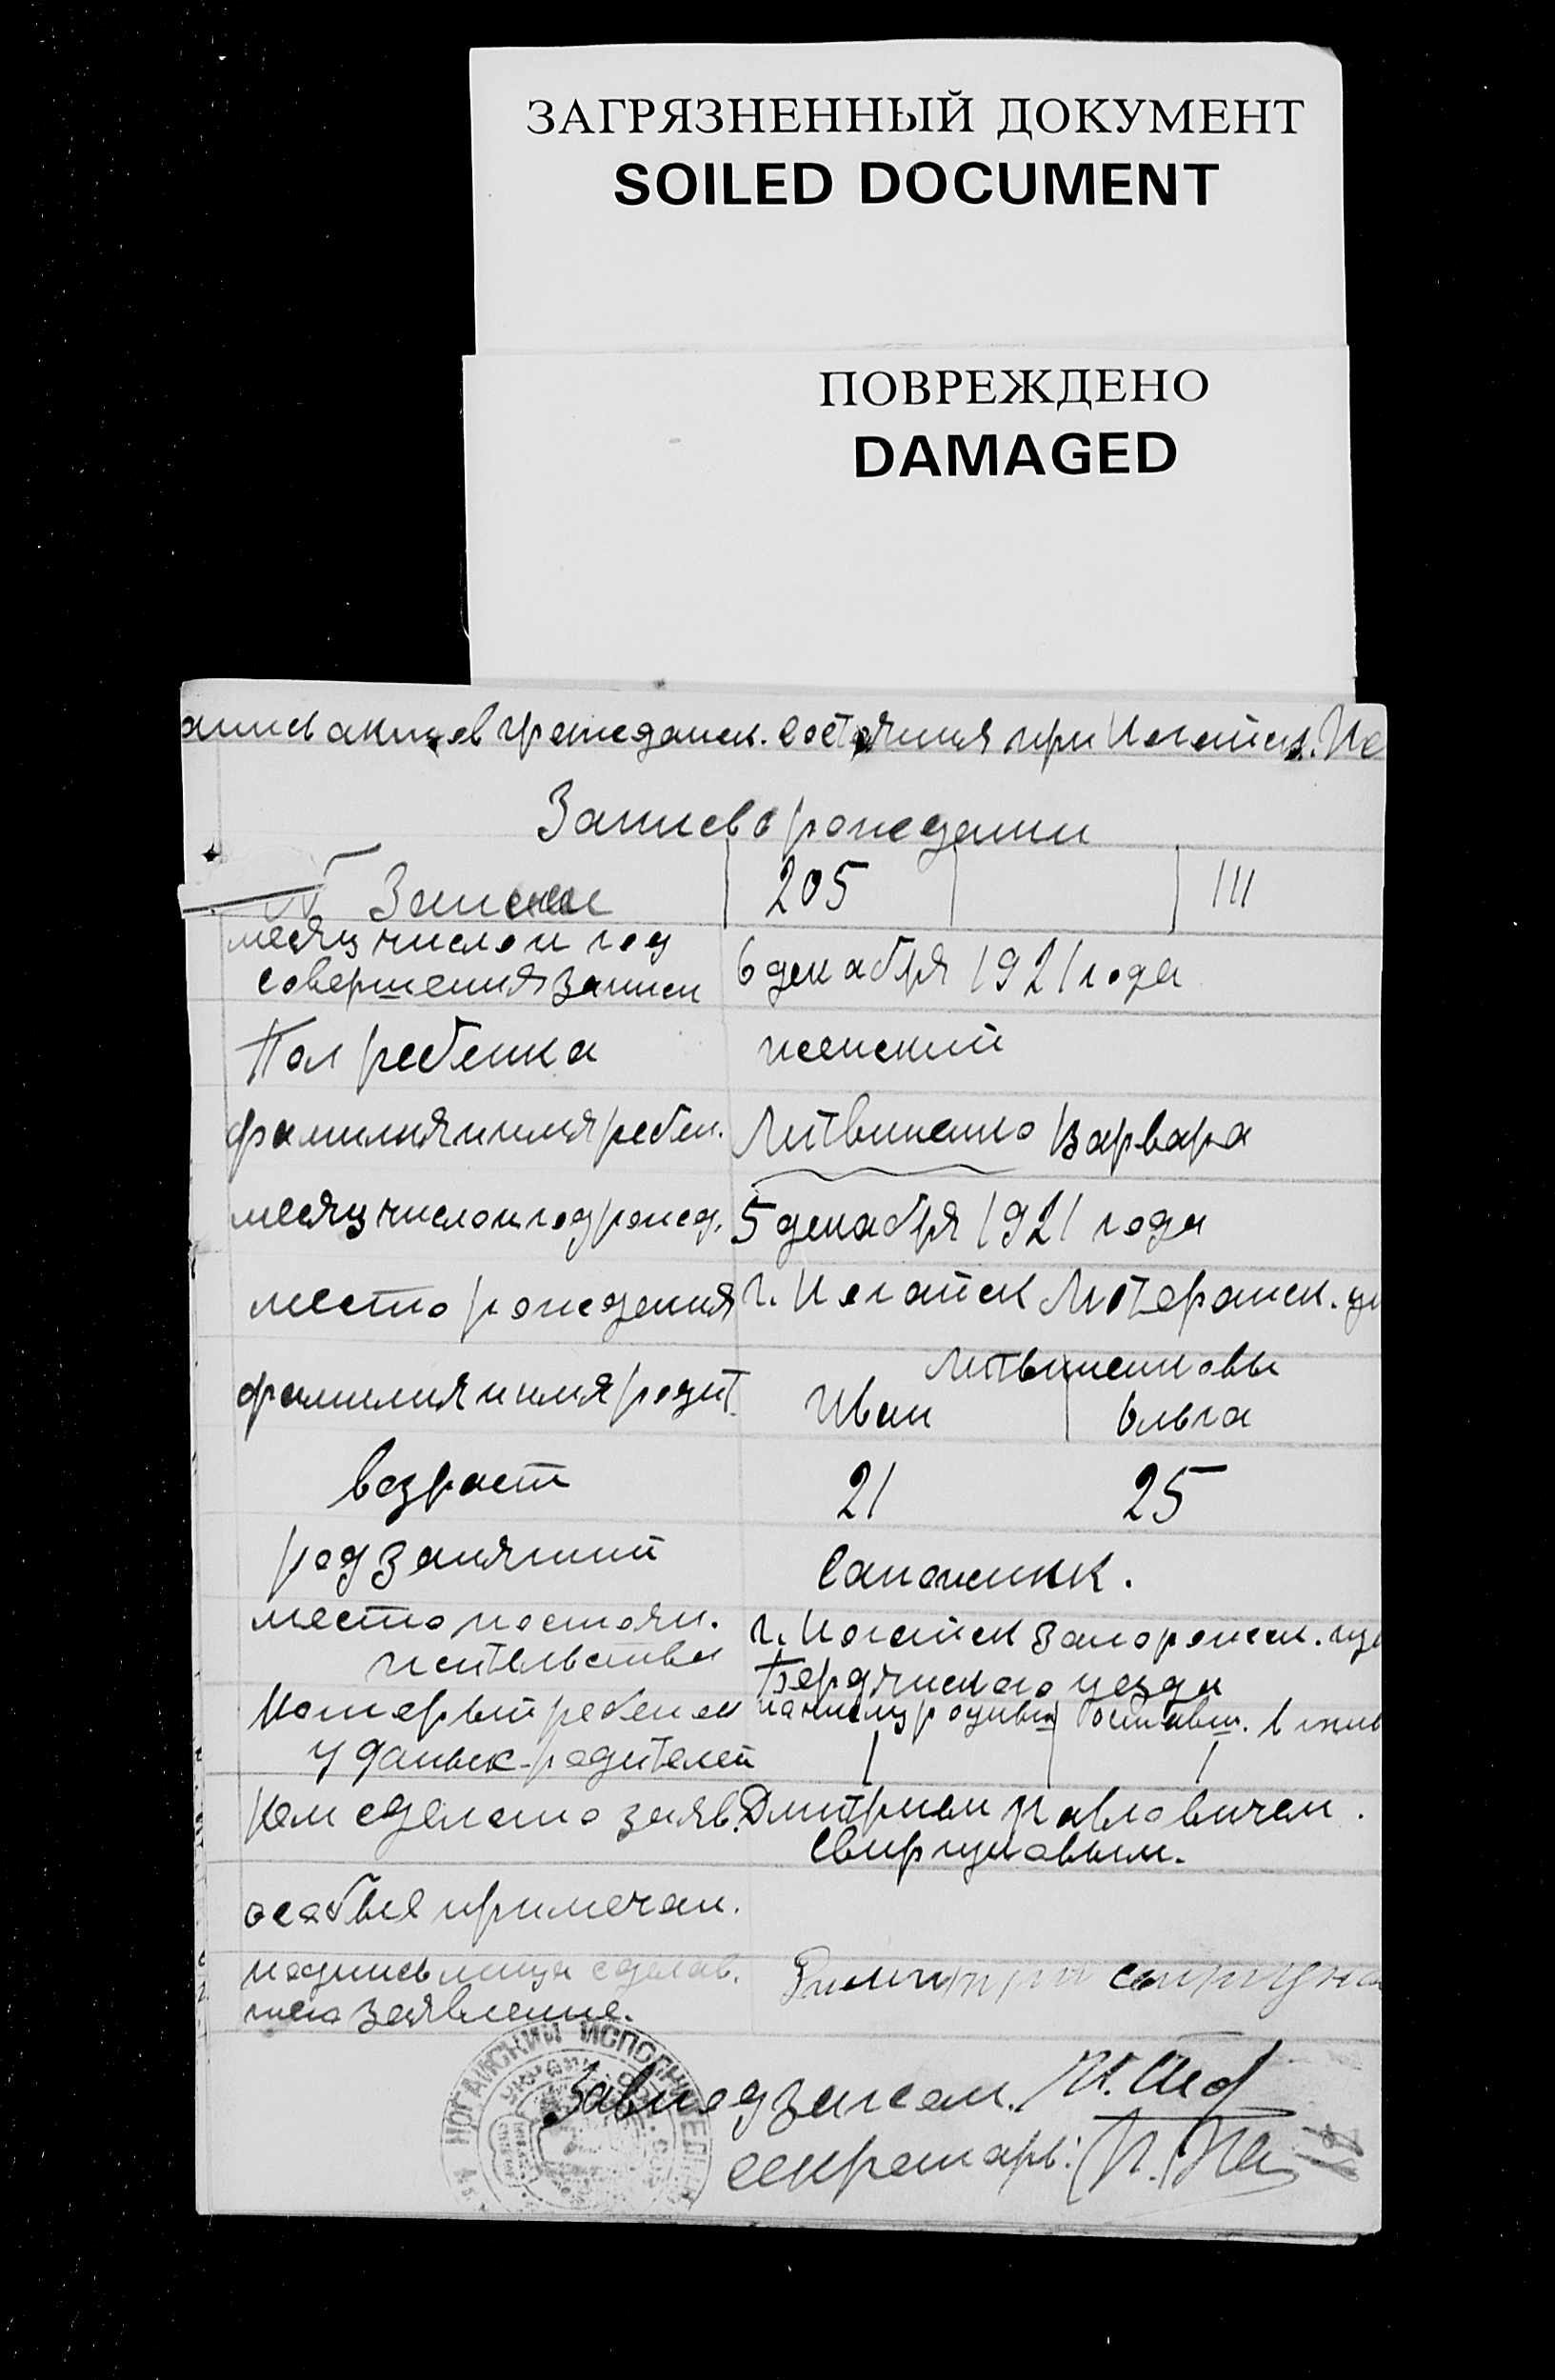 ЗАГРЯЗНЕННЫЙ ДОКУМЕНТ
SOILED DOCUMENT
ПОВРЕЖДЕНО
DAMAGED
апись актов гражданск. состояния при Ногайск. Ис
Запись о рождении
№ Записи 205 111
месяц число и год
совершения записи 6 декабря 1921 года
Пол ребенка женский
фамилия и имя ребен. Литвиненко Варвара
месяц число и год рожд. 5 декабря 1921 года
место рождения г. Ногайск
фамилия и имя родит. Литвиненковы
Иван Ольга
возраст 21 25
род занятий Сапожник.
место постоян. г. Ногайск Запорожск. гу
жительства Бердянского уезда
Который ребенок по числу родивш оставш. в жив
у даных родителей 1 1
Кем сделано заяв. Дмитрием Павловичем
Свиргуновым.
особые примечан.
подпись лица сделав.
шего заявление.
НОГАЙСКИЙ ИСПОЛНИТЕЛЬ
Завподзагсом.
секретарь: